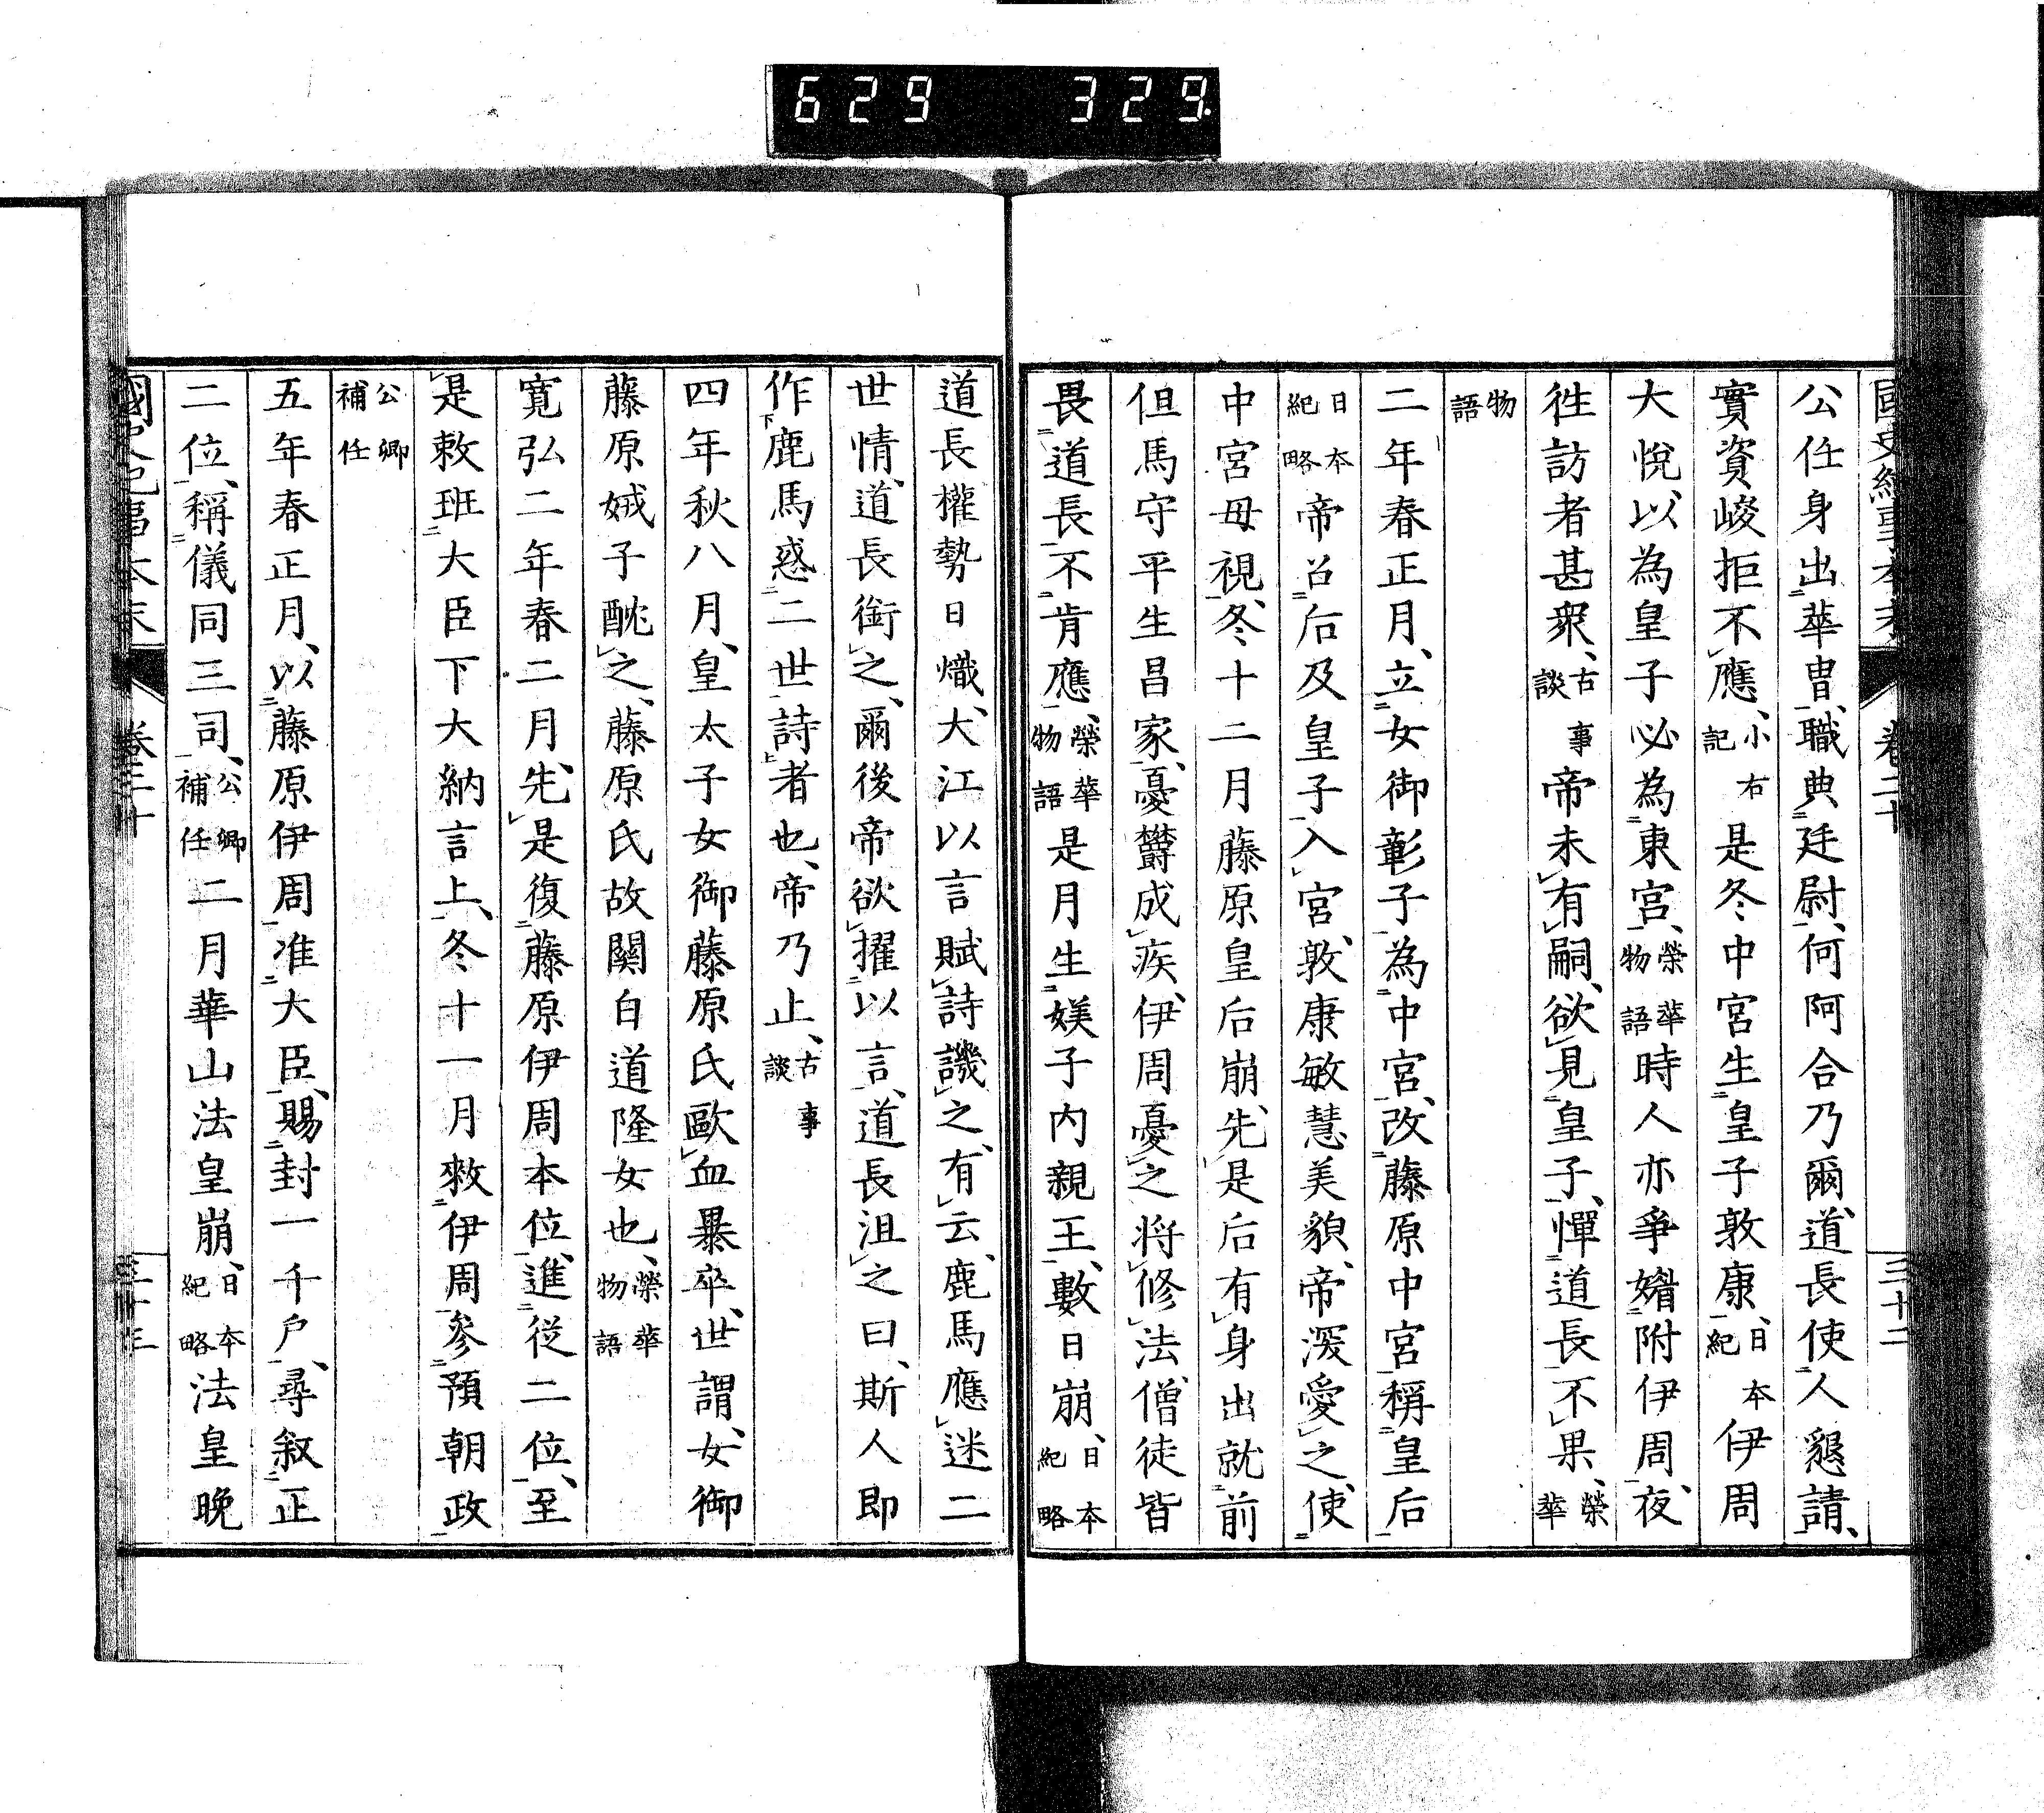 629 329.
國史紀事本末 卷二十 三十二
公任身出華冑、職典廷尉、何阿合乃爾、道長使人懇請、
實資峻拒不應、小右記是冬中宮生皇子敦康、日本紀伊周
大悅、以為皇子必為東宮、榮華物語時人亦爭媚附伊周、夜
徃訪者甚衆、古事談帝未有嗣、欲見皇子、憚道長不果、榮華
物語
二年春正月、立女御彰子為中宮、改藤原中宮稱皇后
日本紀略帝召后及皇子入宮、敦康敏慧美貌、帝深愛之、使
中宮母視、冬十二月藤原皇后崩、先是后有身出就前
但馬守平生昌家、憂鬱成疾、伊周憂之、将修法、僧徒皆
畏道長不肯應、榮華物語是月生媄子内親王、數日崩、日本紀略
道長權勢日熾、大江以言賦詩譏之、有云、鹿馬應迷二
世情、道長銜之、爾後帝欲擢以言、道長沮之曰、斯人即
作鹿馬惑二世詩者也、帝乃止、古事談
四年秋八月、皇太子女御藤原氏歐血暴卒、世謂、女御
藤原娍子酖之、藤原氏故關白道隆女也、榮華物語
寬弘二年春二月、先是復藤原伊周本位、進從二位、至
是敕班大臣下大納言上、冬十一月敕伊周參預朝政
公卿補任
五年春正月、以藤原伊周准大臣、賜封一千戶、尋叙正
二位、稱儀同三司、公卿補任二月華山法皇崩、日本紀略法皇晚
國史紀事本末 卷二十